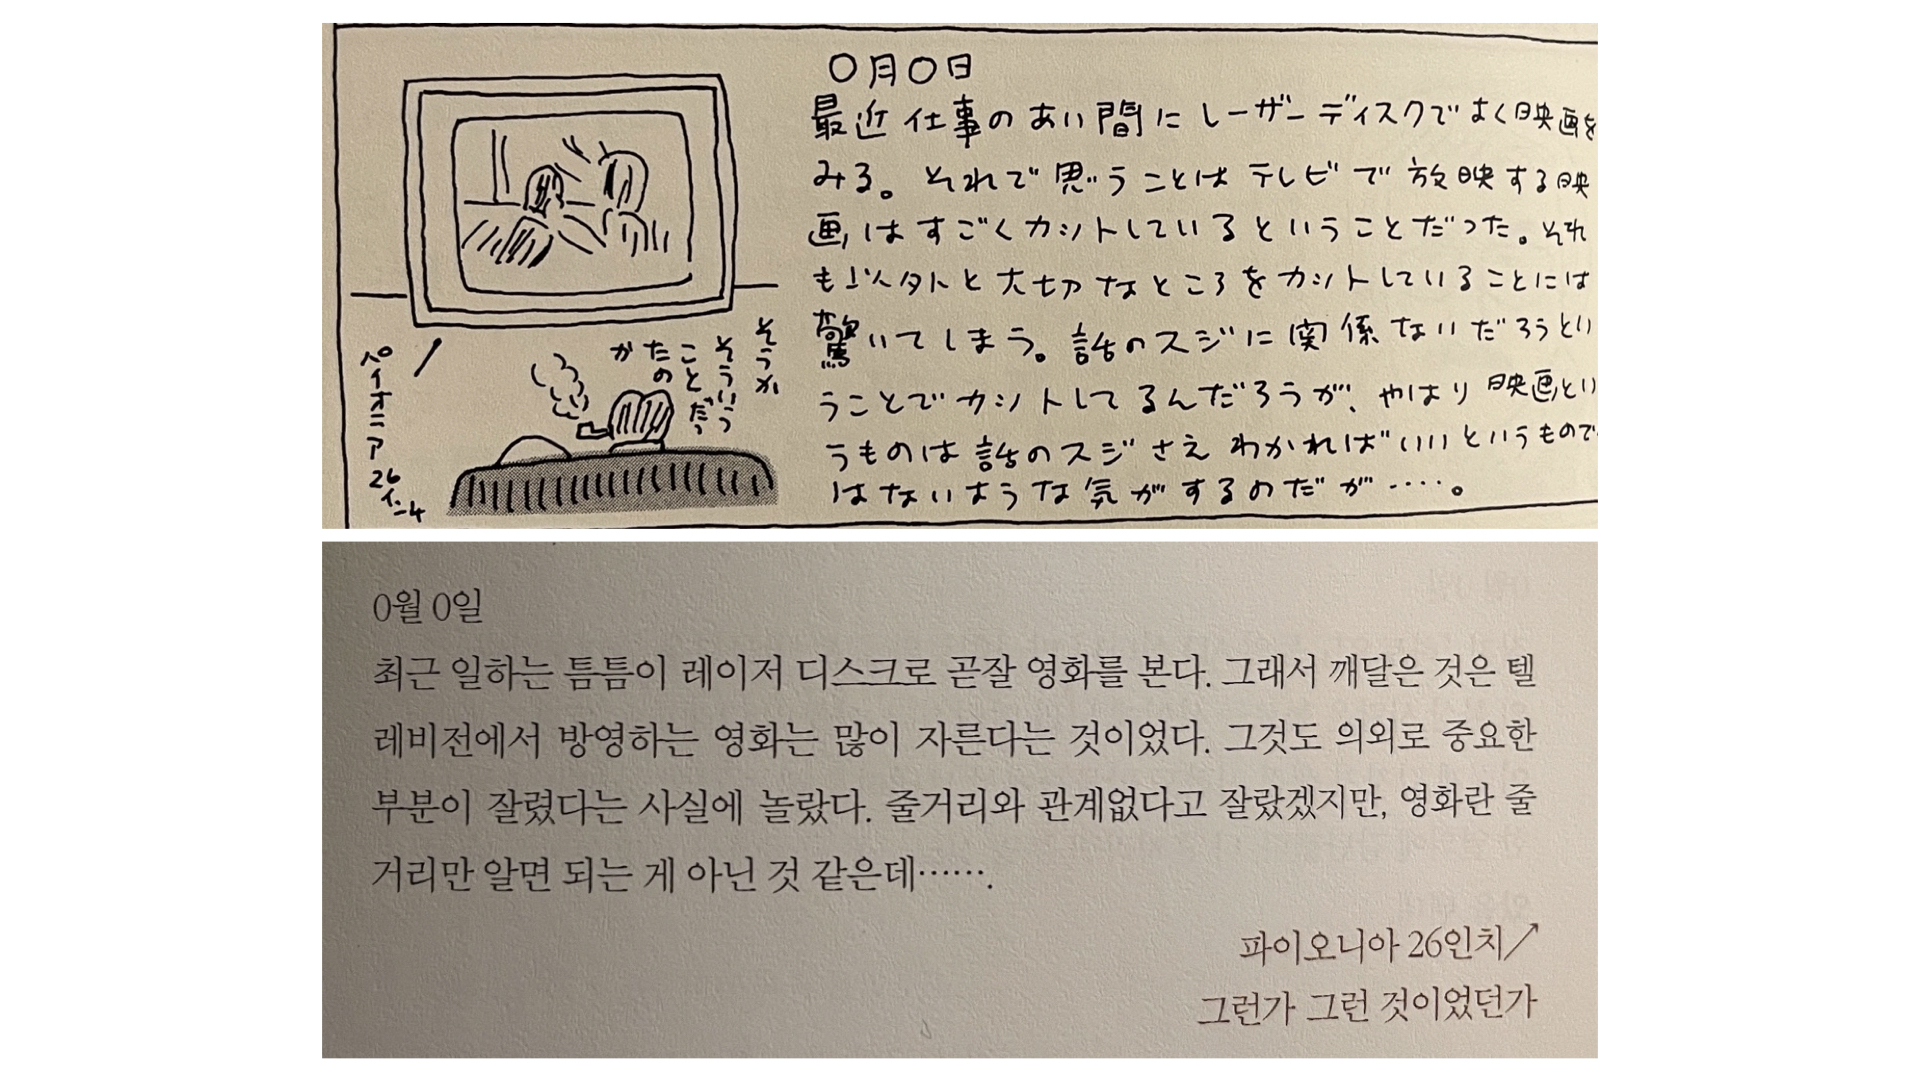 〇月〇日
最近仕事のあい間にレーザーディスクでよく映画を
みる。それで思うことはテレビで放映する映
画はすごくカットしているということだった。それ
も以外と大切なところをカットしていることには
驚いてしまう。話のスジに関係ないだろうとい
うことでカットしてるんだろうが、やはり映画とい
うものは話のスジさえわかればいいというもので
はないような気がするのだが‥‥。
パイオニア26インチ
そうか
そういう
ことだっ
たの
か
0월 0일
최근 일하는 틈틈이 레이저 디스크로 곧잘 영화를 본다. 그래서 깨달은 것은 텔
레비전에서 방영하는 영화는 많이 자른다는 것이었다. 그것도 의외로 중요한
부분이 잘렸다는 사실에 놀랐다. 줄거리와 관계없다고 잘랐겠지만, 영화란 줄
거리만 알면 되는 게 아닌 것 같은데…….
파이오니아 26인치↗
그런가 그런 것이었던가